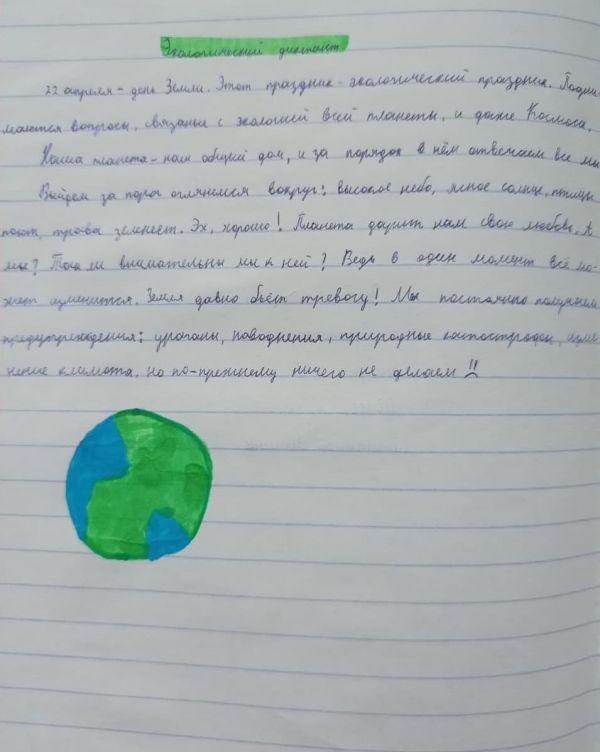 Экологический диктант
22 апреля - день Земли. Этот праздник - экологический праздник. Подни-
маются вопросы, связаные с экологией всей планеты, и даже Космоса.
Наша планета - наш общий дом, и за порядок в нём отвечаем все мы
Выйдем за порог оглянимся вокруг: высокое небо, ясное солнце, птицы
поют, трава зеленеет. Эх, хорошо! Планета дарит нам свою любовь. А
мы? Так ли внимательны мы к ней? Ведь в один момент всё мо-
жет изменится. Земля давно бьёт тревогу! Мы постоянно получаем
предупреждения: ураганы, наводнения, природные катострофы, изме-
нение климата, но по-прежнему ничего не делаем!!